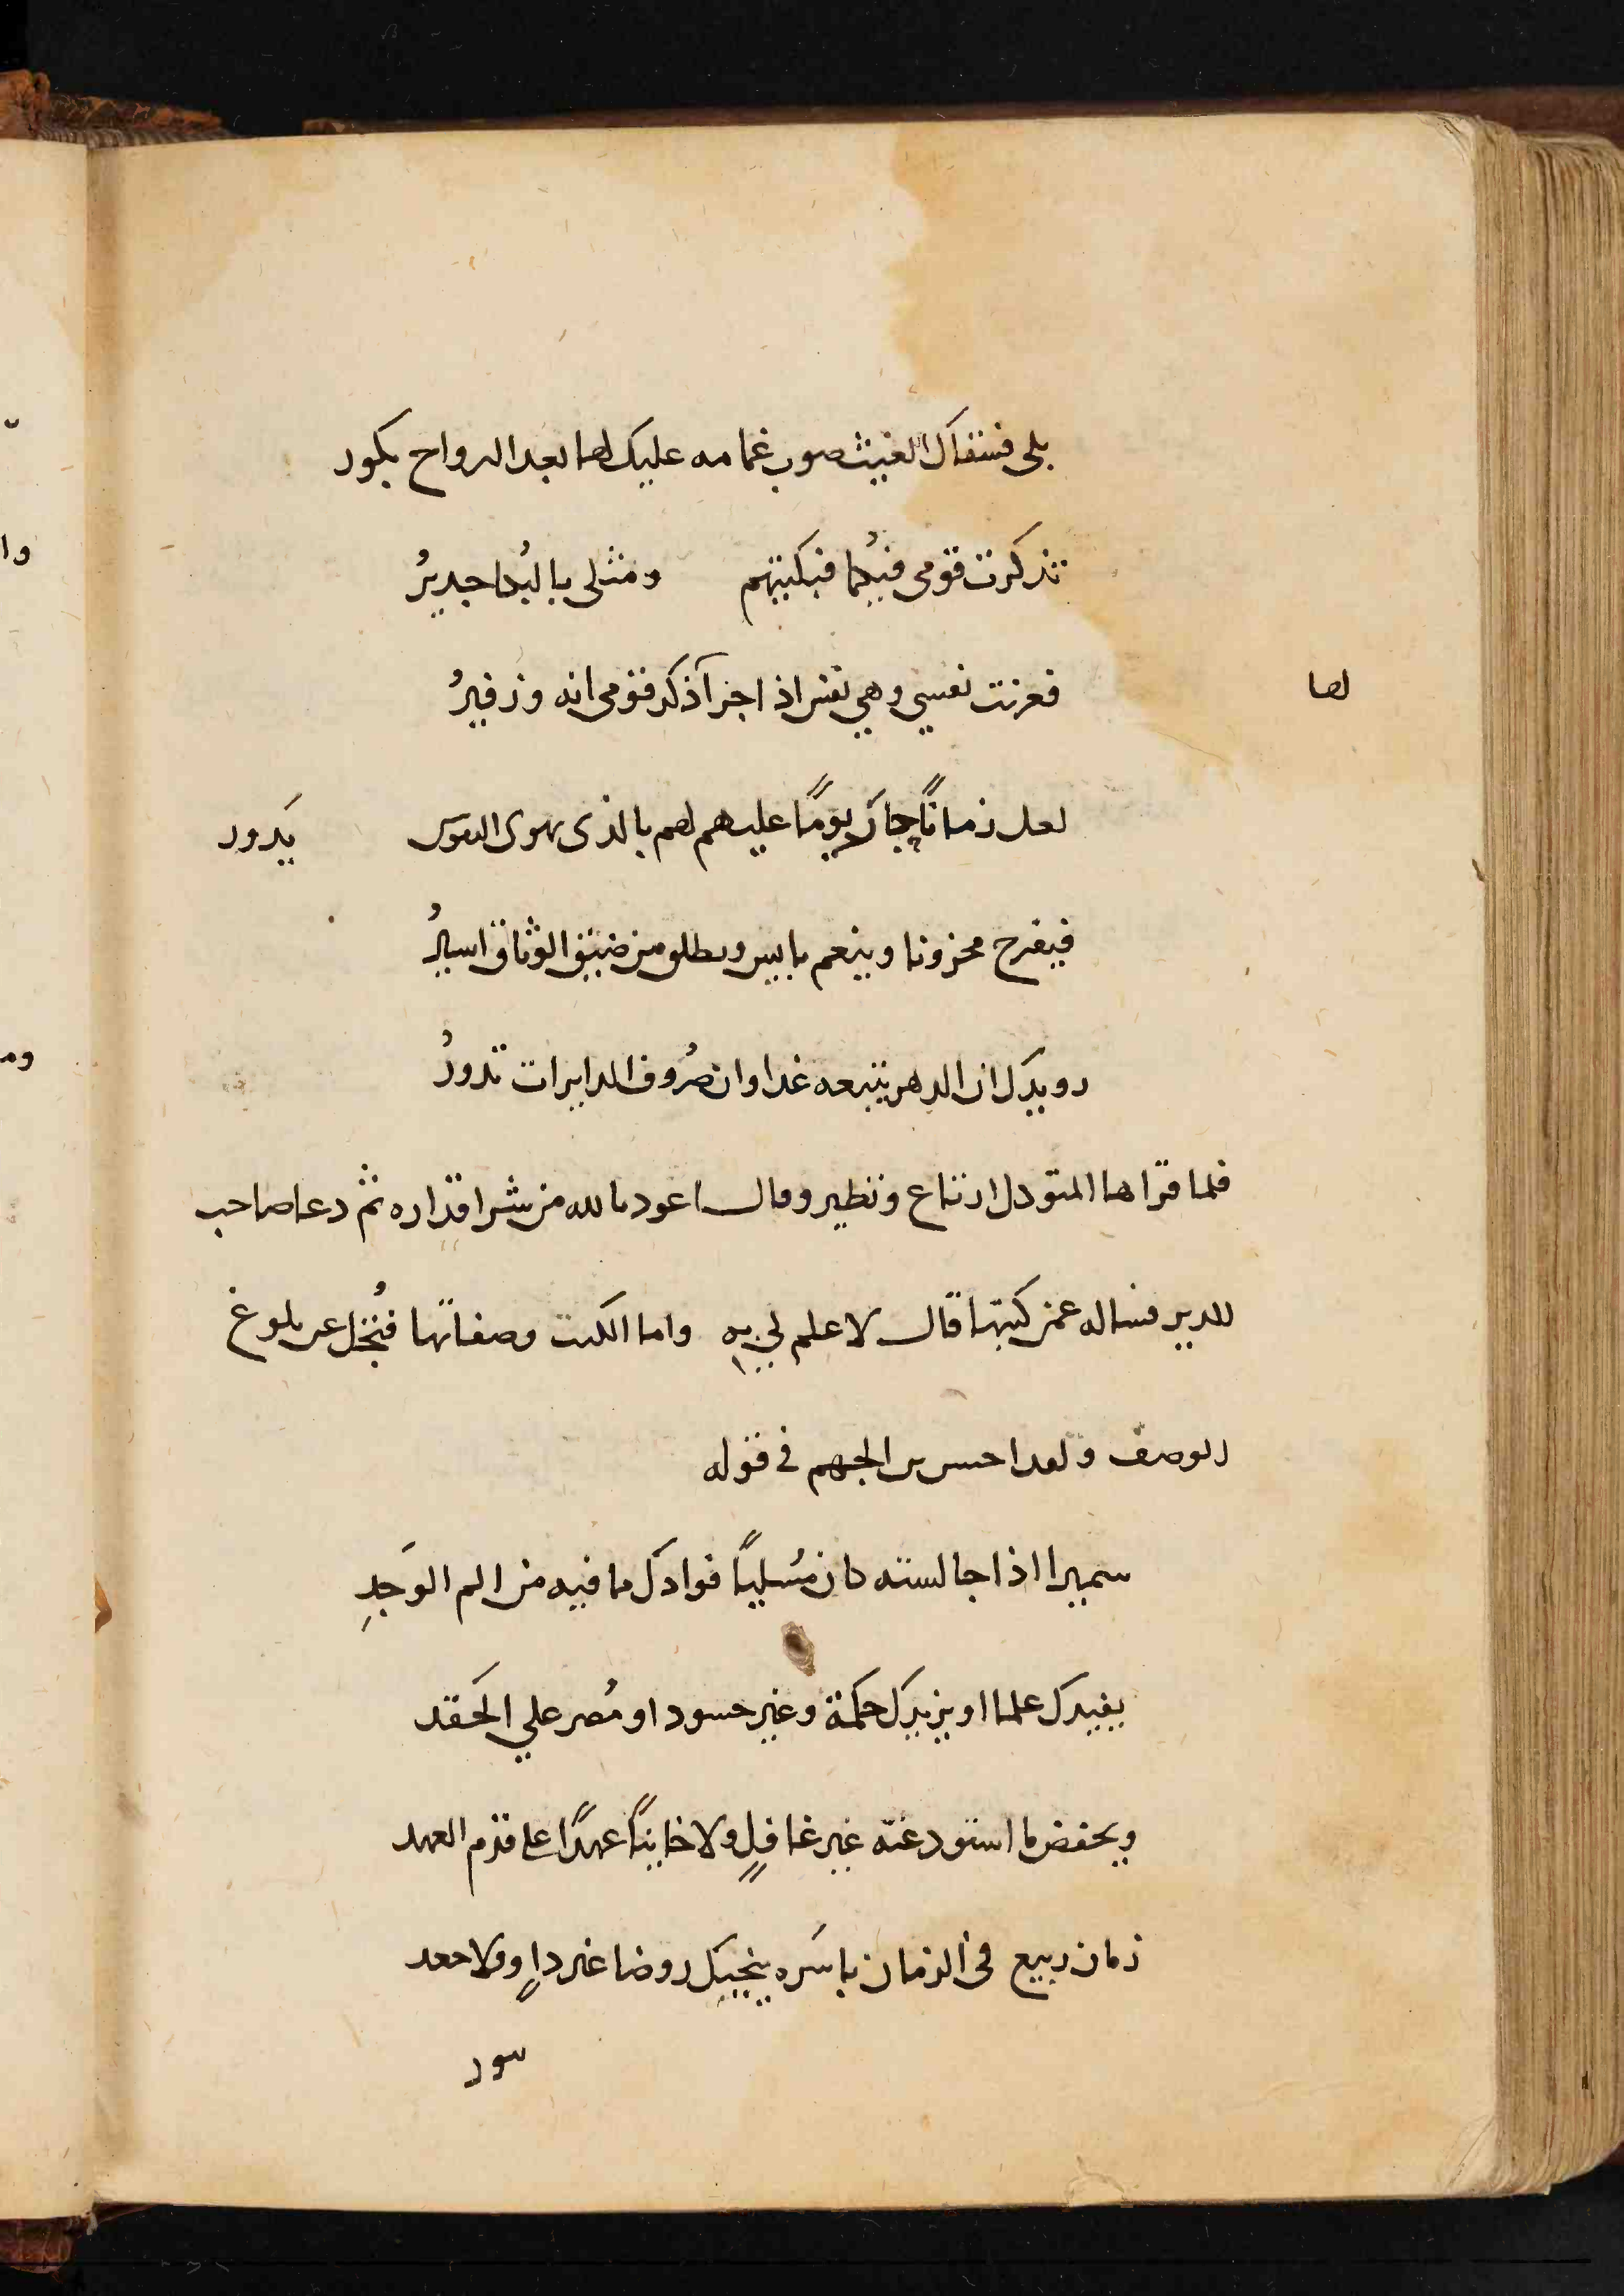 بلى فسقاك الغيث صوب غمامه عليك لها بعد الرواح بكور
تذكرت قومى فيكما فبكيتهم ومثلى بالبكا جديرُ
فعزيت نفسي وهي نفس اذا جرا ذكر قومى انه وزفيرُ
لها
لعل زمانًا جار يومًا عليهم لهم بالذى يهوى النفوس يَدور
فيفرح محزونا وينعم بايس ويطلق من ضيق الوثاق اسيرُ
رويدك ان الدهر يتبعه غدا وان صُروف الدايرات تدورُ
فلما قراها المتوكل ارتاع وتطير وقال اعوذ بالله من شر اقداره ثم دعا صاحب
الدير فساله عمن كتبها قال لا علم لي به واما الكتب وصفاتها فتُجل عن بلوغ
الوصف ولقد احسن بن الجهم فى قوله
سميرا اذا جالسته كان مُسليًا فوادك مما فيه من الم الوَجدِ
يفيدك علما او يزيدك حكمة وغير حسود او مُصر علي الحَقد
ويحفض ما استودعته غير غافلٍ ولا خاينًا عهدًا على قدم العهد
زمان ربيع فى الزمان باسَره يبحيك روضا غير داوٍ ولا جعد